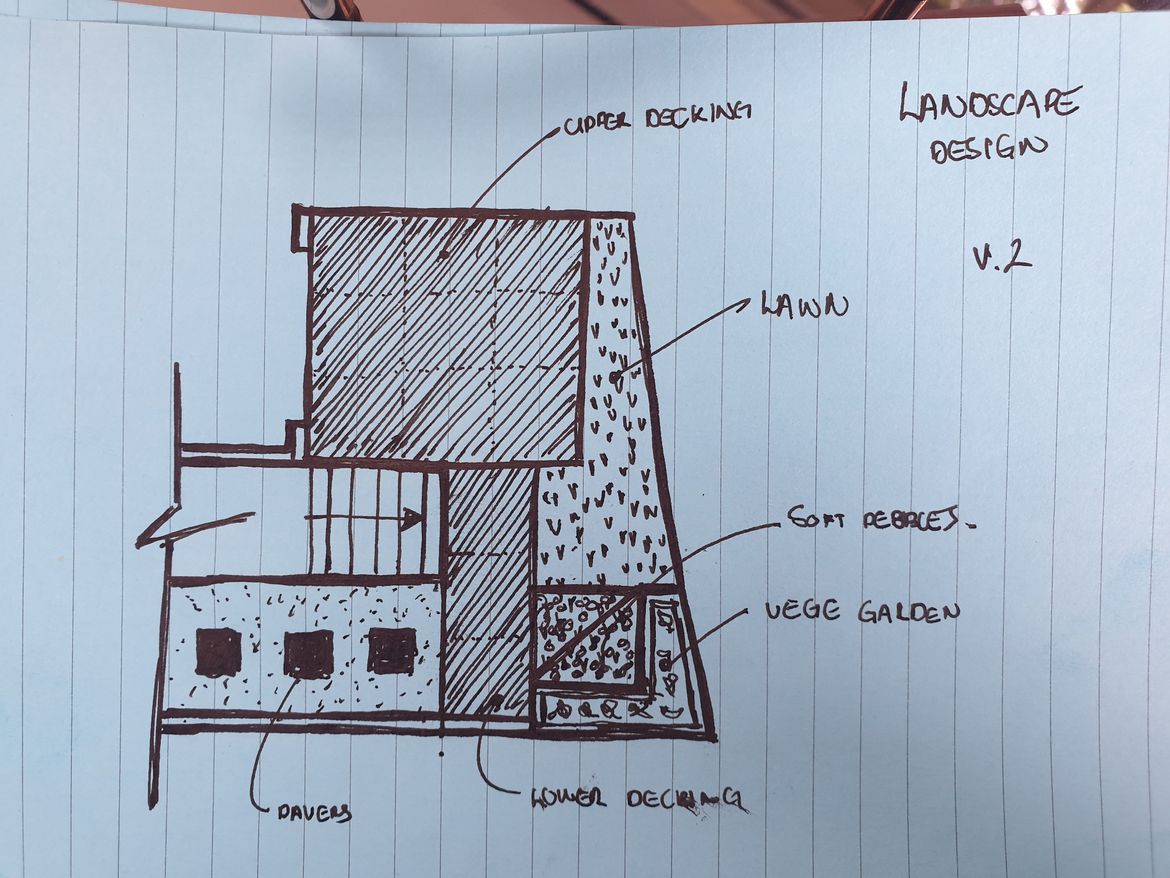 LANDSCAPE
DESIGN
v.2
UPPER DECKING
LAWN
SOFT PEBBLES.
VEGE GARDEN
LOWER DECKING
PAVERS